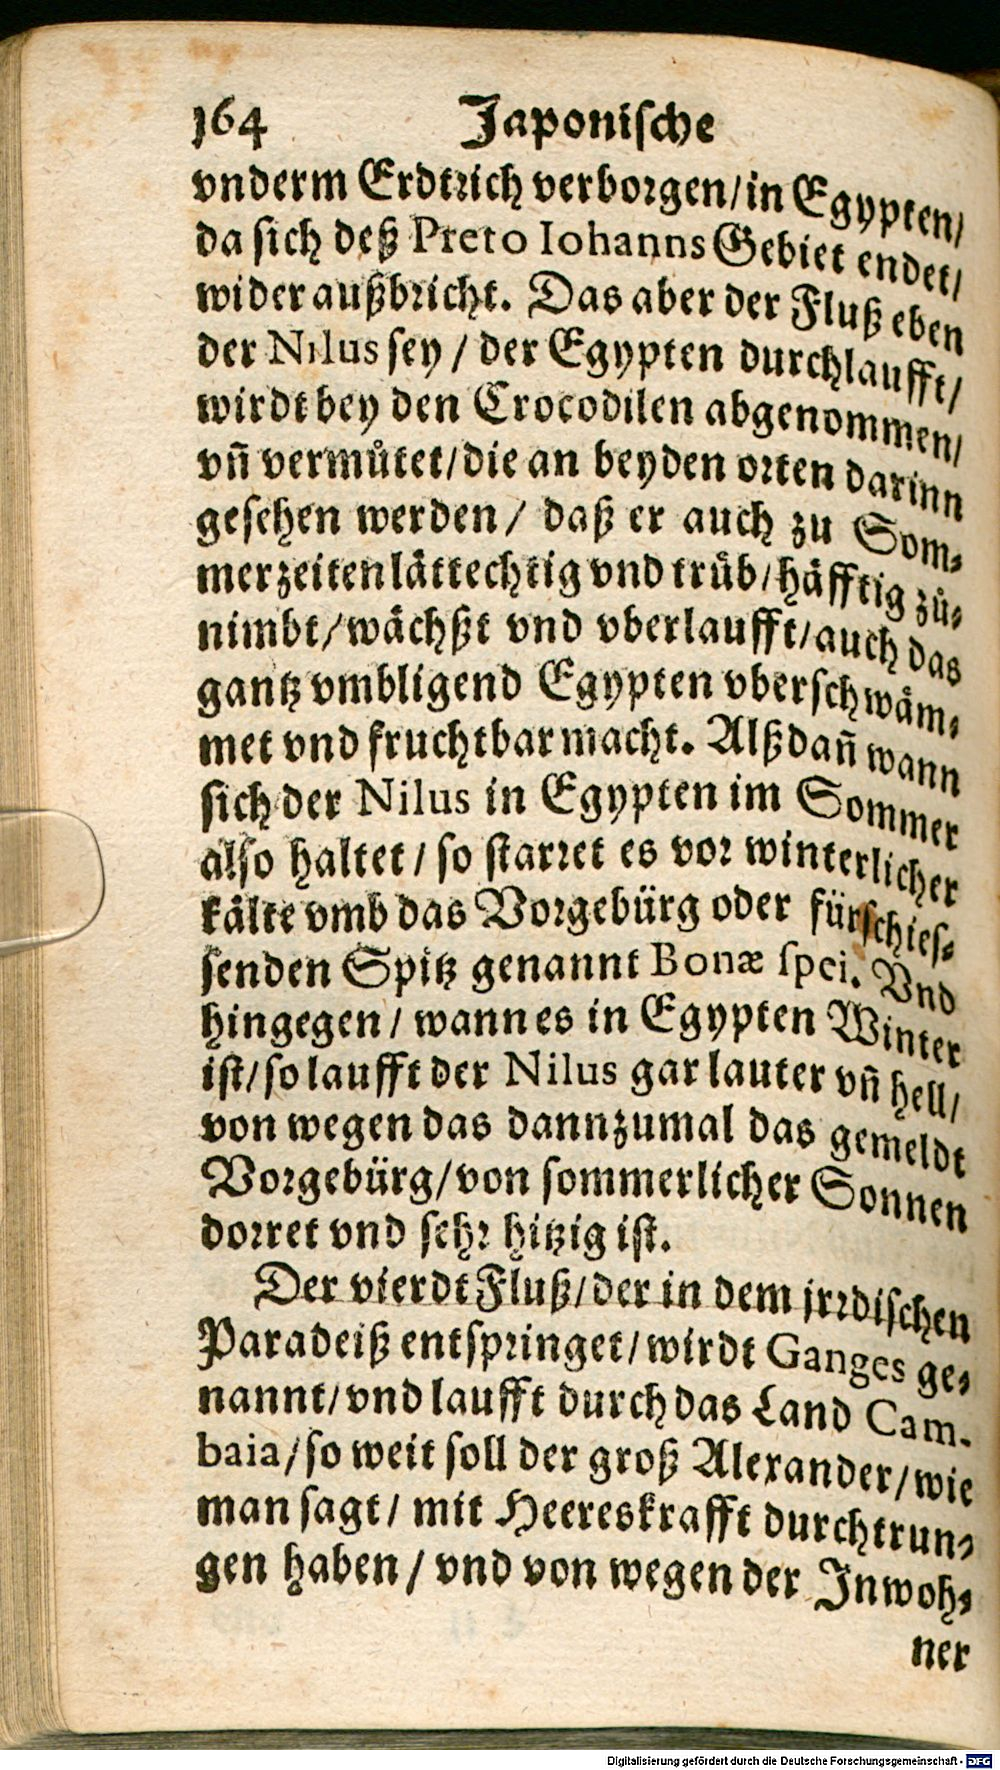 164 Japonische
vnderm Erdtrich verborgen/in Egypten/
da sich deß Preto Iohanns Gebiet endet/
wider außbricht. Das aber der Fluß eben
der Nilus sey / der Egypten durchlaufft/
wirdt bey den Crocodilen abgenommen/
vñ vermůtet/die an beyden orten darinn
gesehen werden / daß er auch zu Som⸗
merzeiten lättechtig vnd trüb/häfftig zů⸗
nimbt/wächßt vnd vberlaufft/auch das
gantz vmbligend Egypten vberschwäm⸗
met vnd fruchtbar macht. Alßdañ wann
sich der Nilus in Egypten im Sommer
also haltet / so starret es vor winterlicher
kälte vmb das Vorgebürg oder fürschies⸗
senden Spitz genannt Bonæ spei. Vnd
hingegen / wann es in Egypten Winter
ist/so laufft der Nilus gar lauter vñ hell/
von wegen das dannzumal das gemeldt
Vorgebürg/von sommerlicher Sonnen
dorret vnd sehr hitzig ist.
Der vierdt Fluß/der in dem jrrdischen
Paradeiß entspringet/wirdt Ganges ge⸗
nannt/vnd laufft durch das Land Cam-
baia/so weit soll der groß Alexander/wie
man sagt / mit Heereskrafft durchtrun⸗
gen haben / vnd von wegen der Inwoh⸗
ner
Digitalisierung gefördert durch die Deutsche Forschungsgemeinschaft - DFG